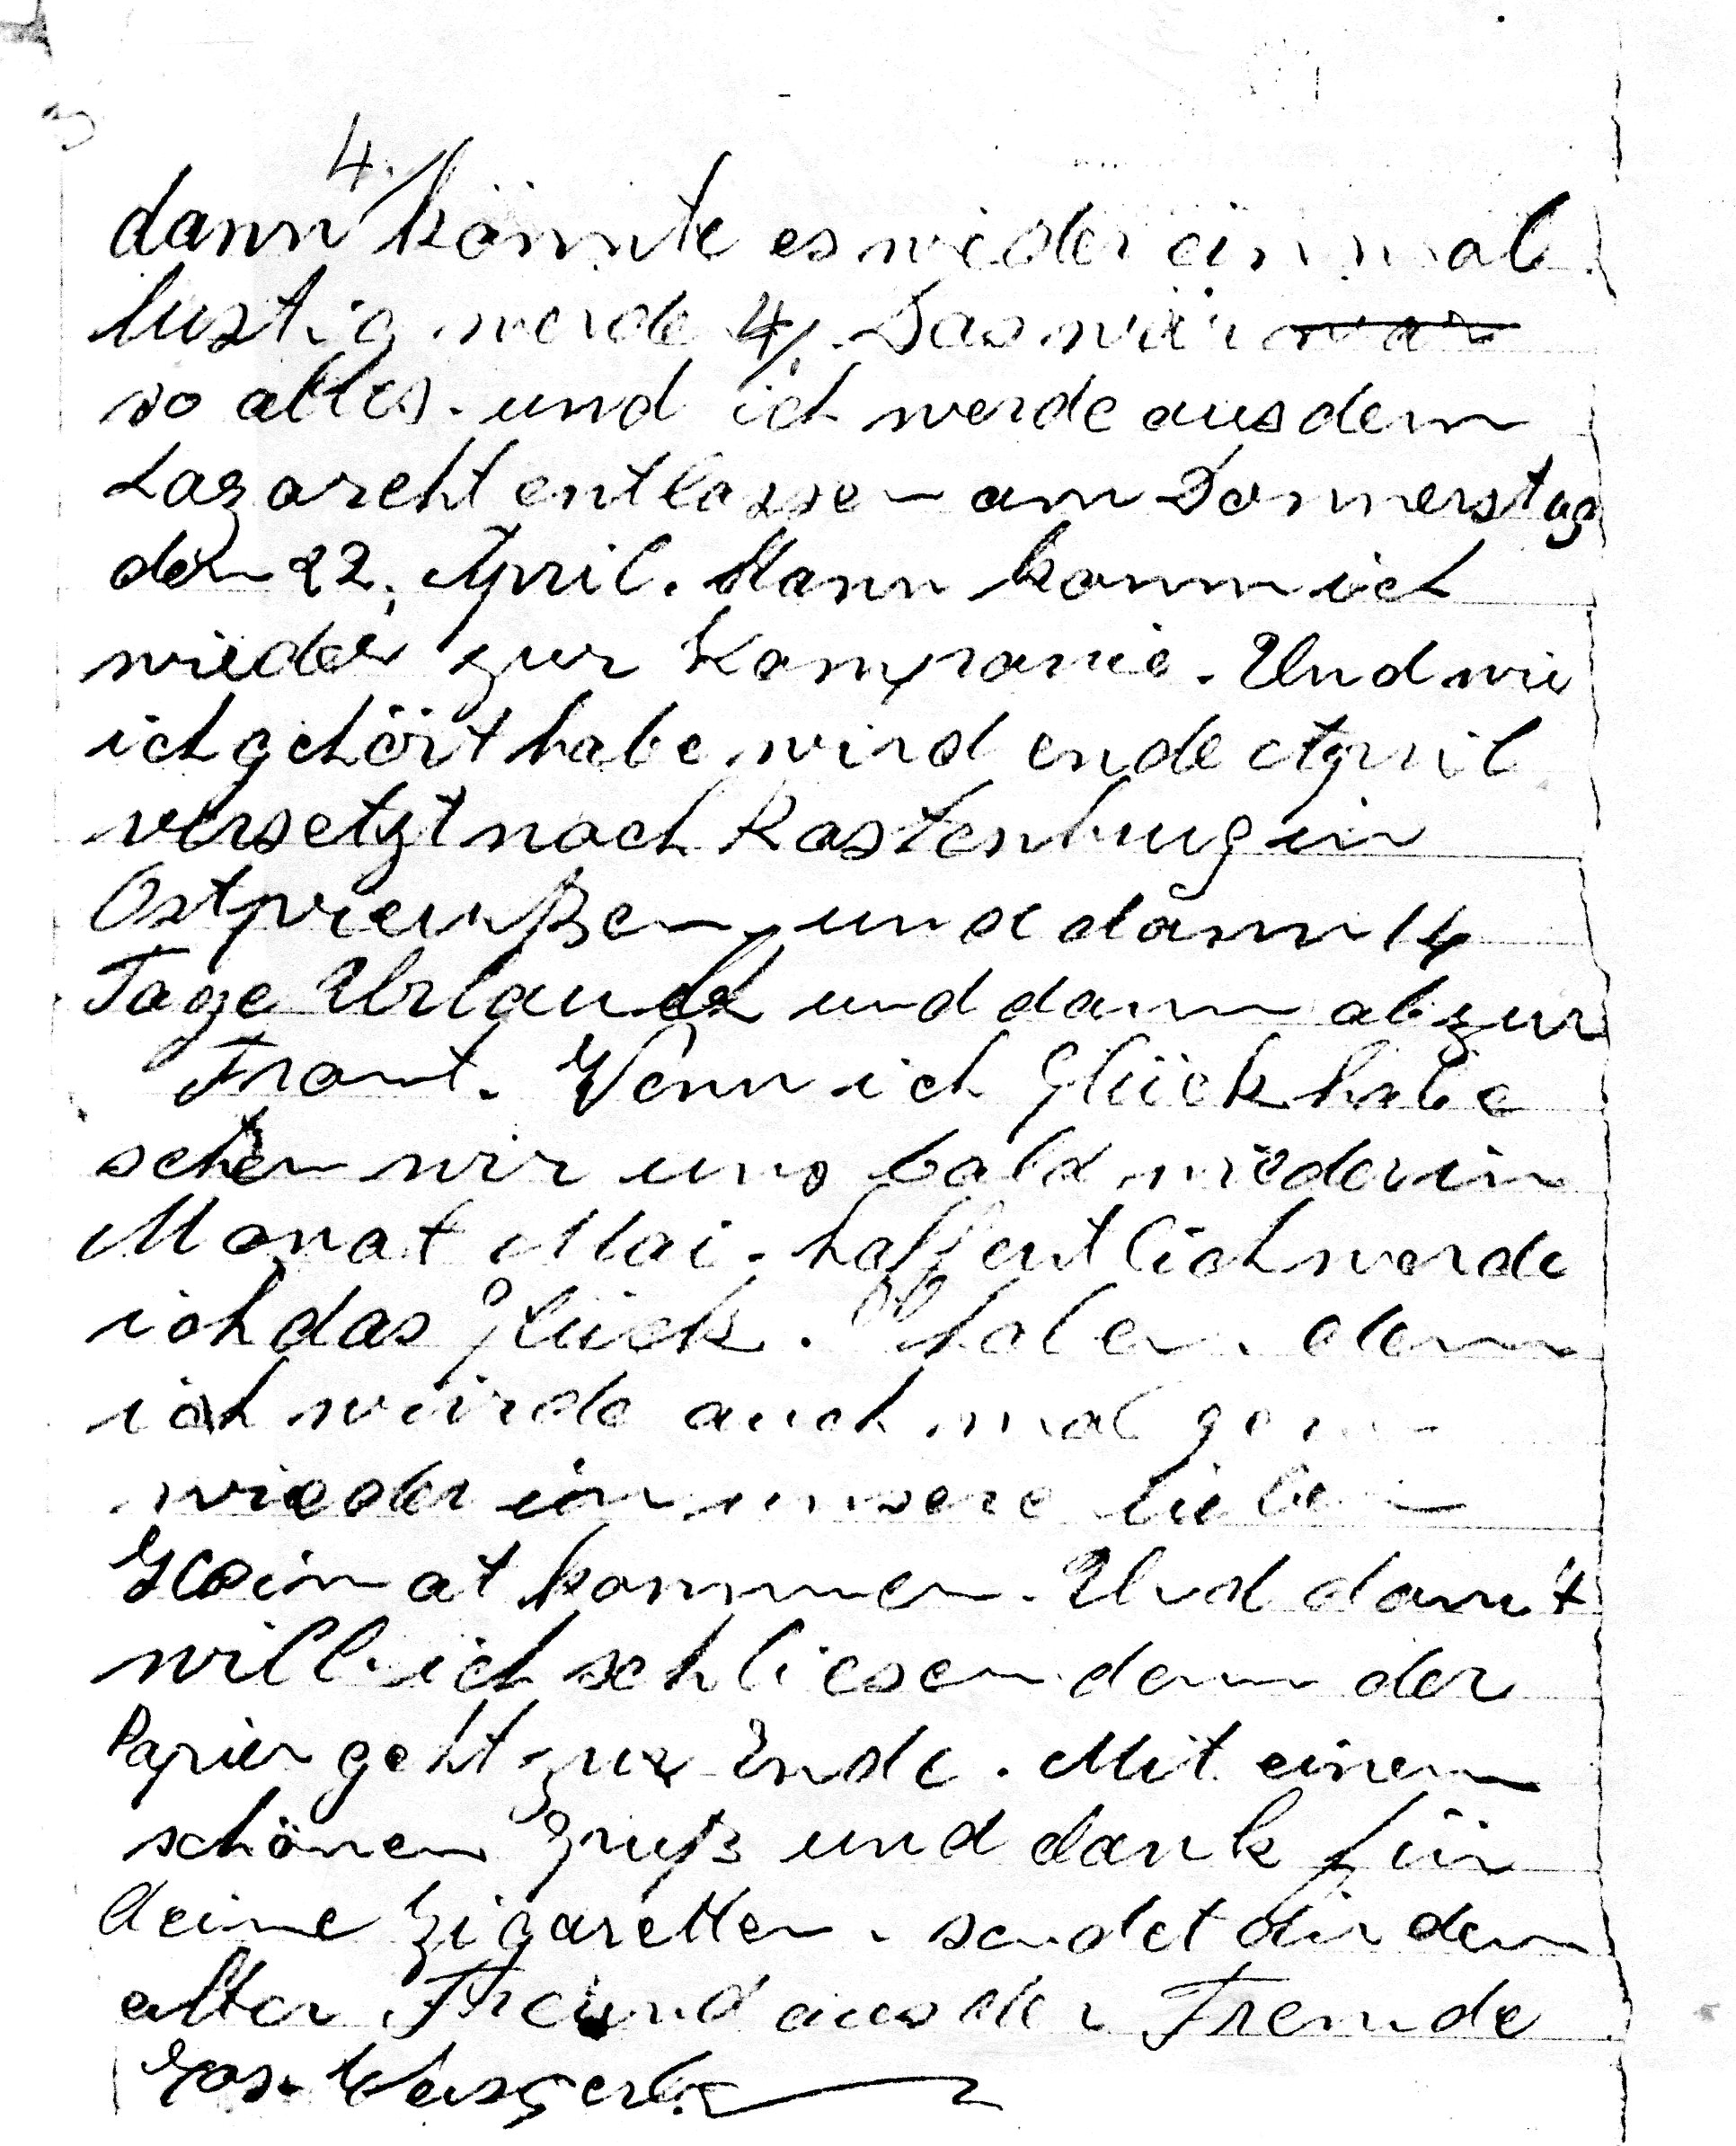 4.
dann könnte es wieder einmal
lustig werde 4/. Das wär war
so alles. und ich werde aus dem
Lazareht entlassen am Donnerstag
den 22. April. Dann komm ich
wieder zur Kompanie. Und wie
ich gehört habe wird ende April
versetzt nach Rastenburg in
Ostpreußen, und dann 14
Tage Urlaub und dann ab zur
Front. Wenn ich Glück habe
sehen wir uns bald wieder im
Monat Mai. hoffentlich werde
ich das Glück. Ob haben. denn
ich würde auch mal gern
wieder in unsere lieben
Heimat kommen. Und damit
will ich schliesen denn der
Papier geht zur Ende. Mit einem
schönen Gruß und dank für
deine Zigaretten. sendet dir dein
alter Freund aus der Fremde